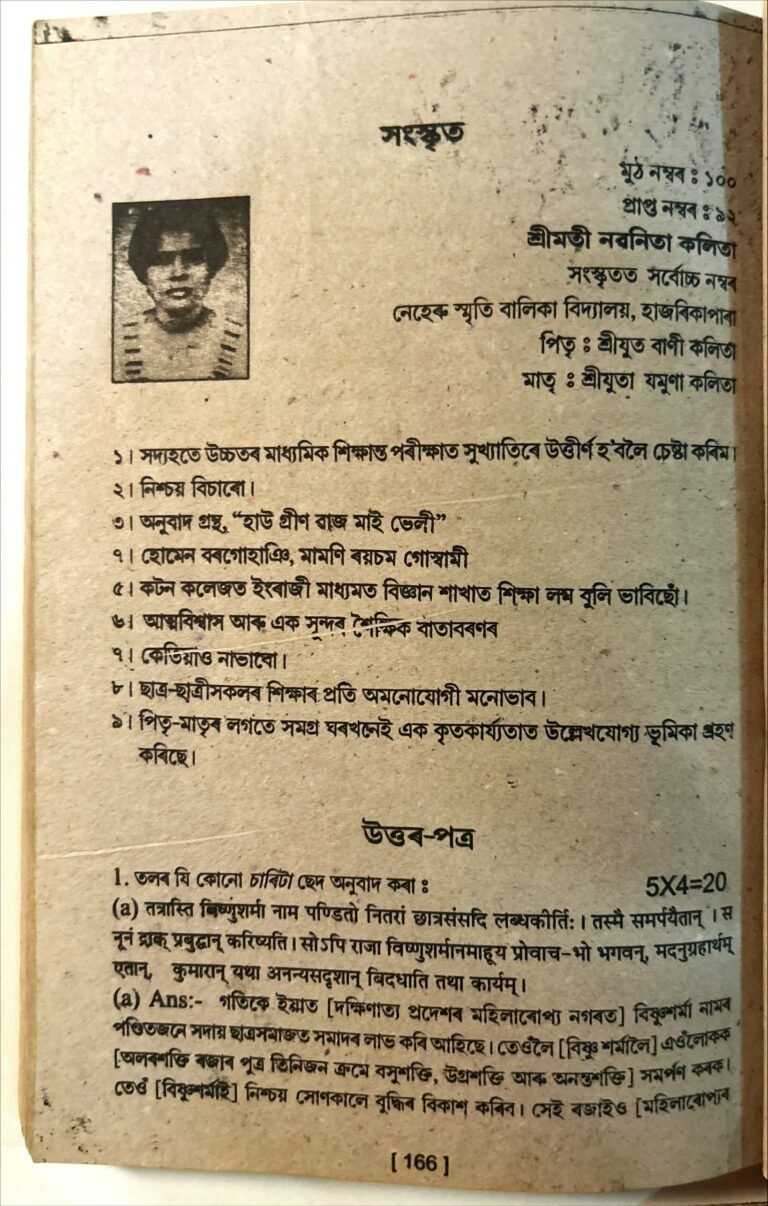 সংস্কৃত
মুঠ নম্বৰ : ১০০
প্ৰাপ্ত নম্বৰ : ৯২
শ্ৰীমতী নৱনিতা কলিতা
সংস্কৃতত সৰ্বোচ্চ নম্বৰ
নেহেৰু স্মৃতি বালিকা বিদ্যালয়, হাজৰিকাপাৰা
পিতৃ : শ্ৰীযুত বাণী কলিতা
মাতৃ : শ্ৰীযুতা যমুণা কলিতা
১। সদ্যহতে উচ্চতৰ মাধ্যমিক শিক্ষান্ত পৰীক্ষাত সুখ্যাতিৰে উত্তীৰ্ণ হ'বলৈ চেষ্টা কৰিম।
২। নিশ্চয় বিচাৰো।
৩। অনুবাদ গ্ৰন্থ, “হাউ গ্ৰীণ ৱাজ মাই ভেলী”
৭। হোমেন বৰগোহাঞি, মামণি ৰয়চম গোস্বামী
৫। কটন কলেজত ইংৰাজী মাধ্যমত বিজ্ঞান শাখাত শিক্ষা লম বুলি ভাবিছোঁ।
৬। আত্মবিশ্বাস আৰু এক সুন্দৰ শৈক্ষিক বাতাবৰণৰ
৭। কেতিয়াও নাভাবো।
৮। ছাত্ৰ-ছাত্ৰীসকলৰ শিক্ষাৰ প্ৰতি অমনোযোগী মনোভাব।
৯। পিতৃ-মাতৃৰ লগতে সমগ্ৰ ঘৰখনেই এক কৃতকাৰ্য্যতাত উল্লেখযোগ্য ভূমিকা গ্ৰহণ
কৰিছে।
উত্তৰ-পত্ৰ
1. তলৰ যি কোনো চাৰিটা ছেদ অনুবাদ কৰা : 5X4=20
(a) तत्रास्ति बिष्णुशर्मा नाम पण्डितो नितरां छात्रसंसदि लब्धकीर्ति: । तस्मै समर्पयैतान् । स
नूनं द्राक् प्रबुद्धान् करिष्यति । सोऽपि राजा विष्णुशर्मानमाहूय प्रोवाच-भो भगवन्, मदनुग्रहार्थम्
एतान्, कुमारान् यथा अनन्यसदृशान् बिदधाति तथा कार्यम् ।
(a) Ans:- গতিকে ইয়াত [দক্ষিণাত্য প্ৰদেশৰ মহিলাৰোপ্য নগৰত] বিষ্ণুশৰ্মা নামৰ
পণ্ডিতজনে সদায় ছাত্ৰসমাজত সমাদৰ লাভ কৰি আহিছে। তেওঁলৈ [বিষ্ণু শৰ্মালৈ] এওঁলোকক
[অলৰশক্তি ৰজাৰ পুত্ৰ তিনিজন ক্ৰমে বসুশক্তি, উগ্ৰশক্তি আৰু অনন্তশক্তি] সমৰ্পণ কৰক।
তেওঁ [বিষ্ণুশৰ্মাই] নিশ্চয় সোণকালে বুদ্ধিৰ বিকাশ কৰিব। সেই ৰজাইও [মহিলাৰোপ্যৰ
[ 166 ]